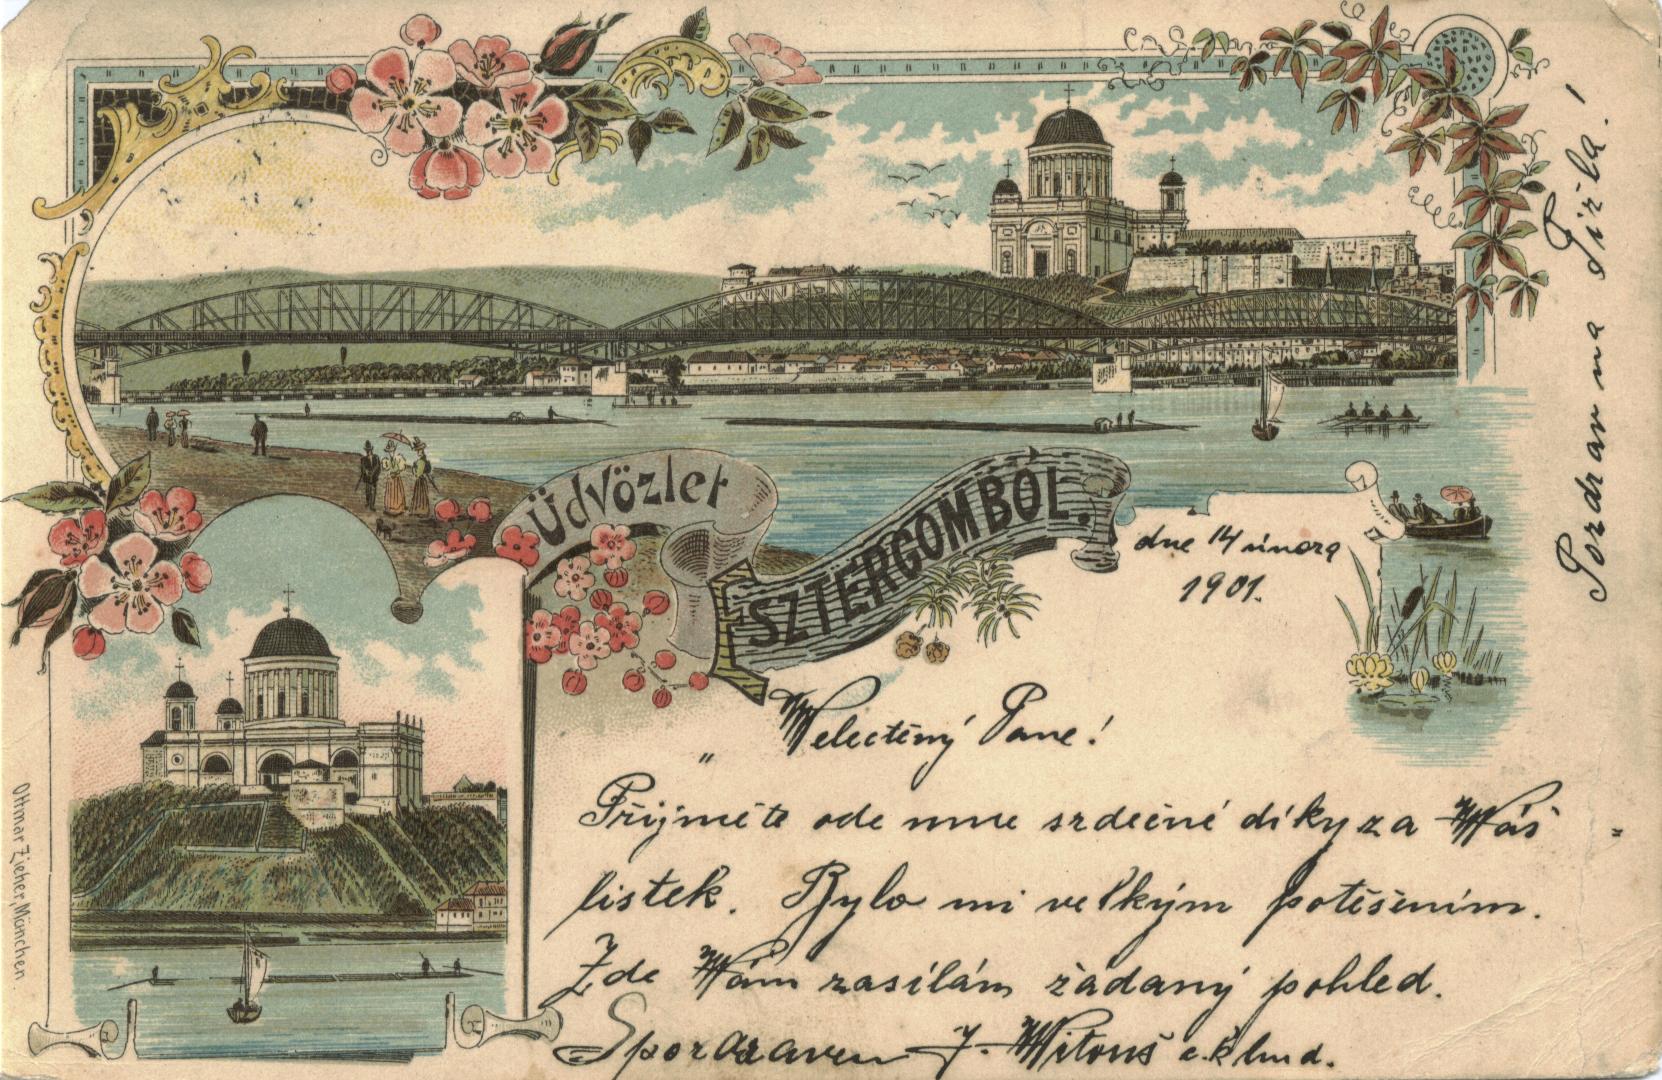 Üdvözlet
ESZTERGOMBÓL.
dne 14 února
1901.
Welectěný Pane!
Přijměte ode mne srdečné díky za Wáš
listek. Bylo mi velkým potěšením.
Zde Wám zasílám žádaný pohled.
S pozdravem J. Witouš
Pozdrav na
Ottmar Zieher, München.